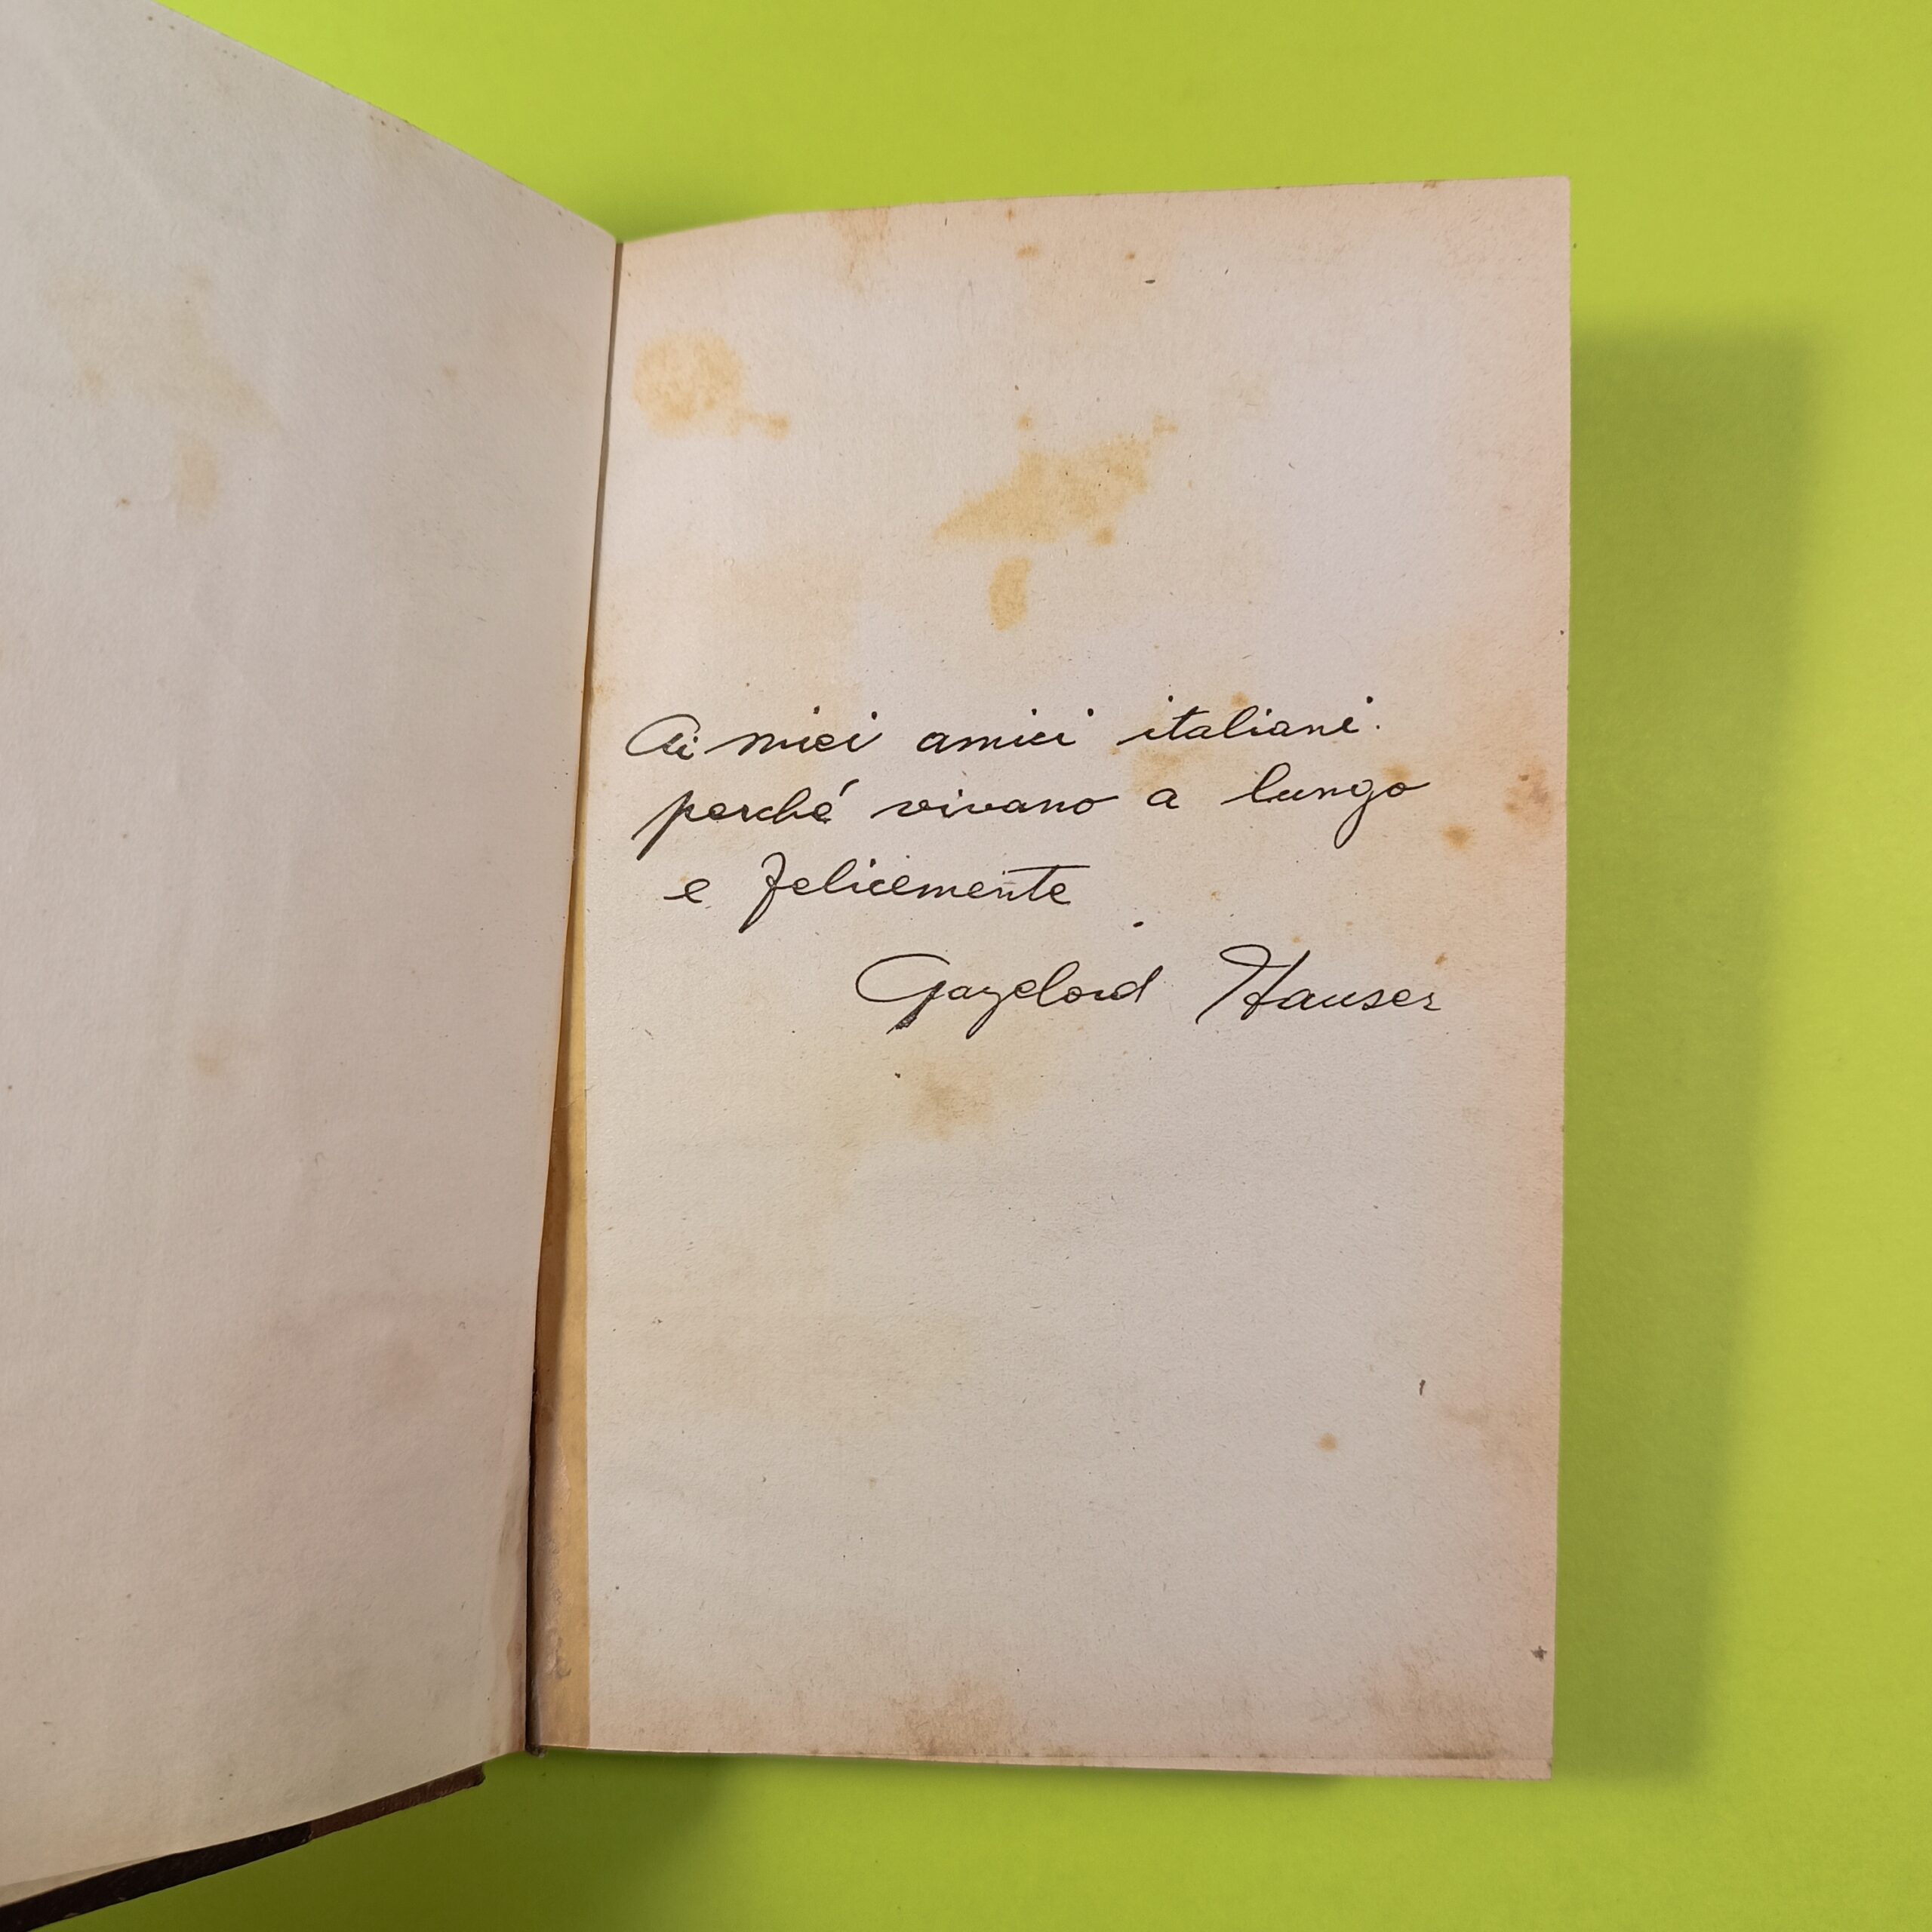 Ai miei amici italiani.
perché vivano a lungo
e felicemente
Gayelord Hauser